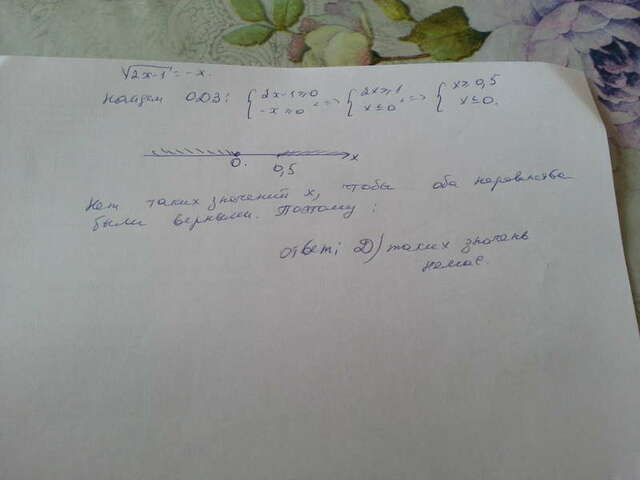 √2x-1 = -x.
Найдем ОДЗ: { 2x-1≥0 -x≥0 , => { 2x≥1 x≤0 , => { x≥0,5 x≤0.
0. 0,5 x
Нет таких значений x, чтобы оба неравенства
были верными. Поэтому:
ответ: D) таких значень
немає.